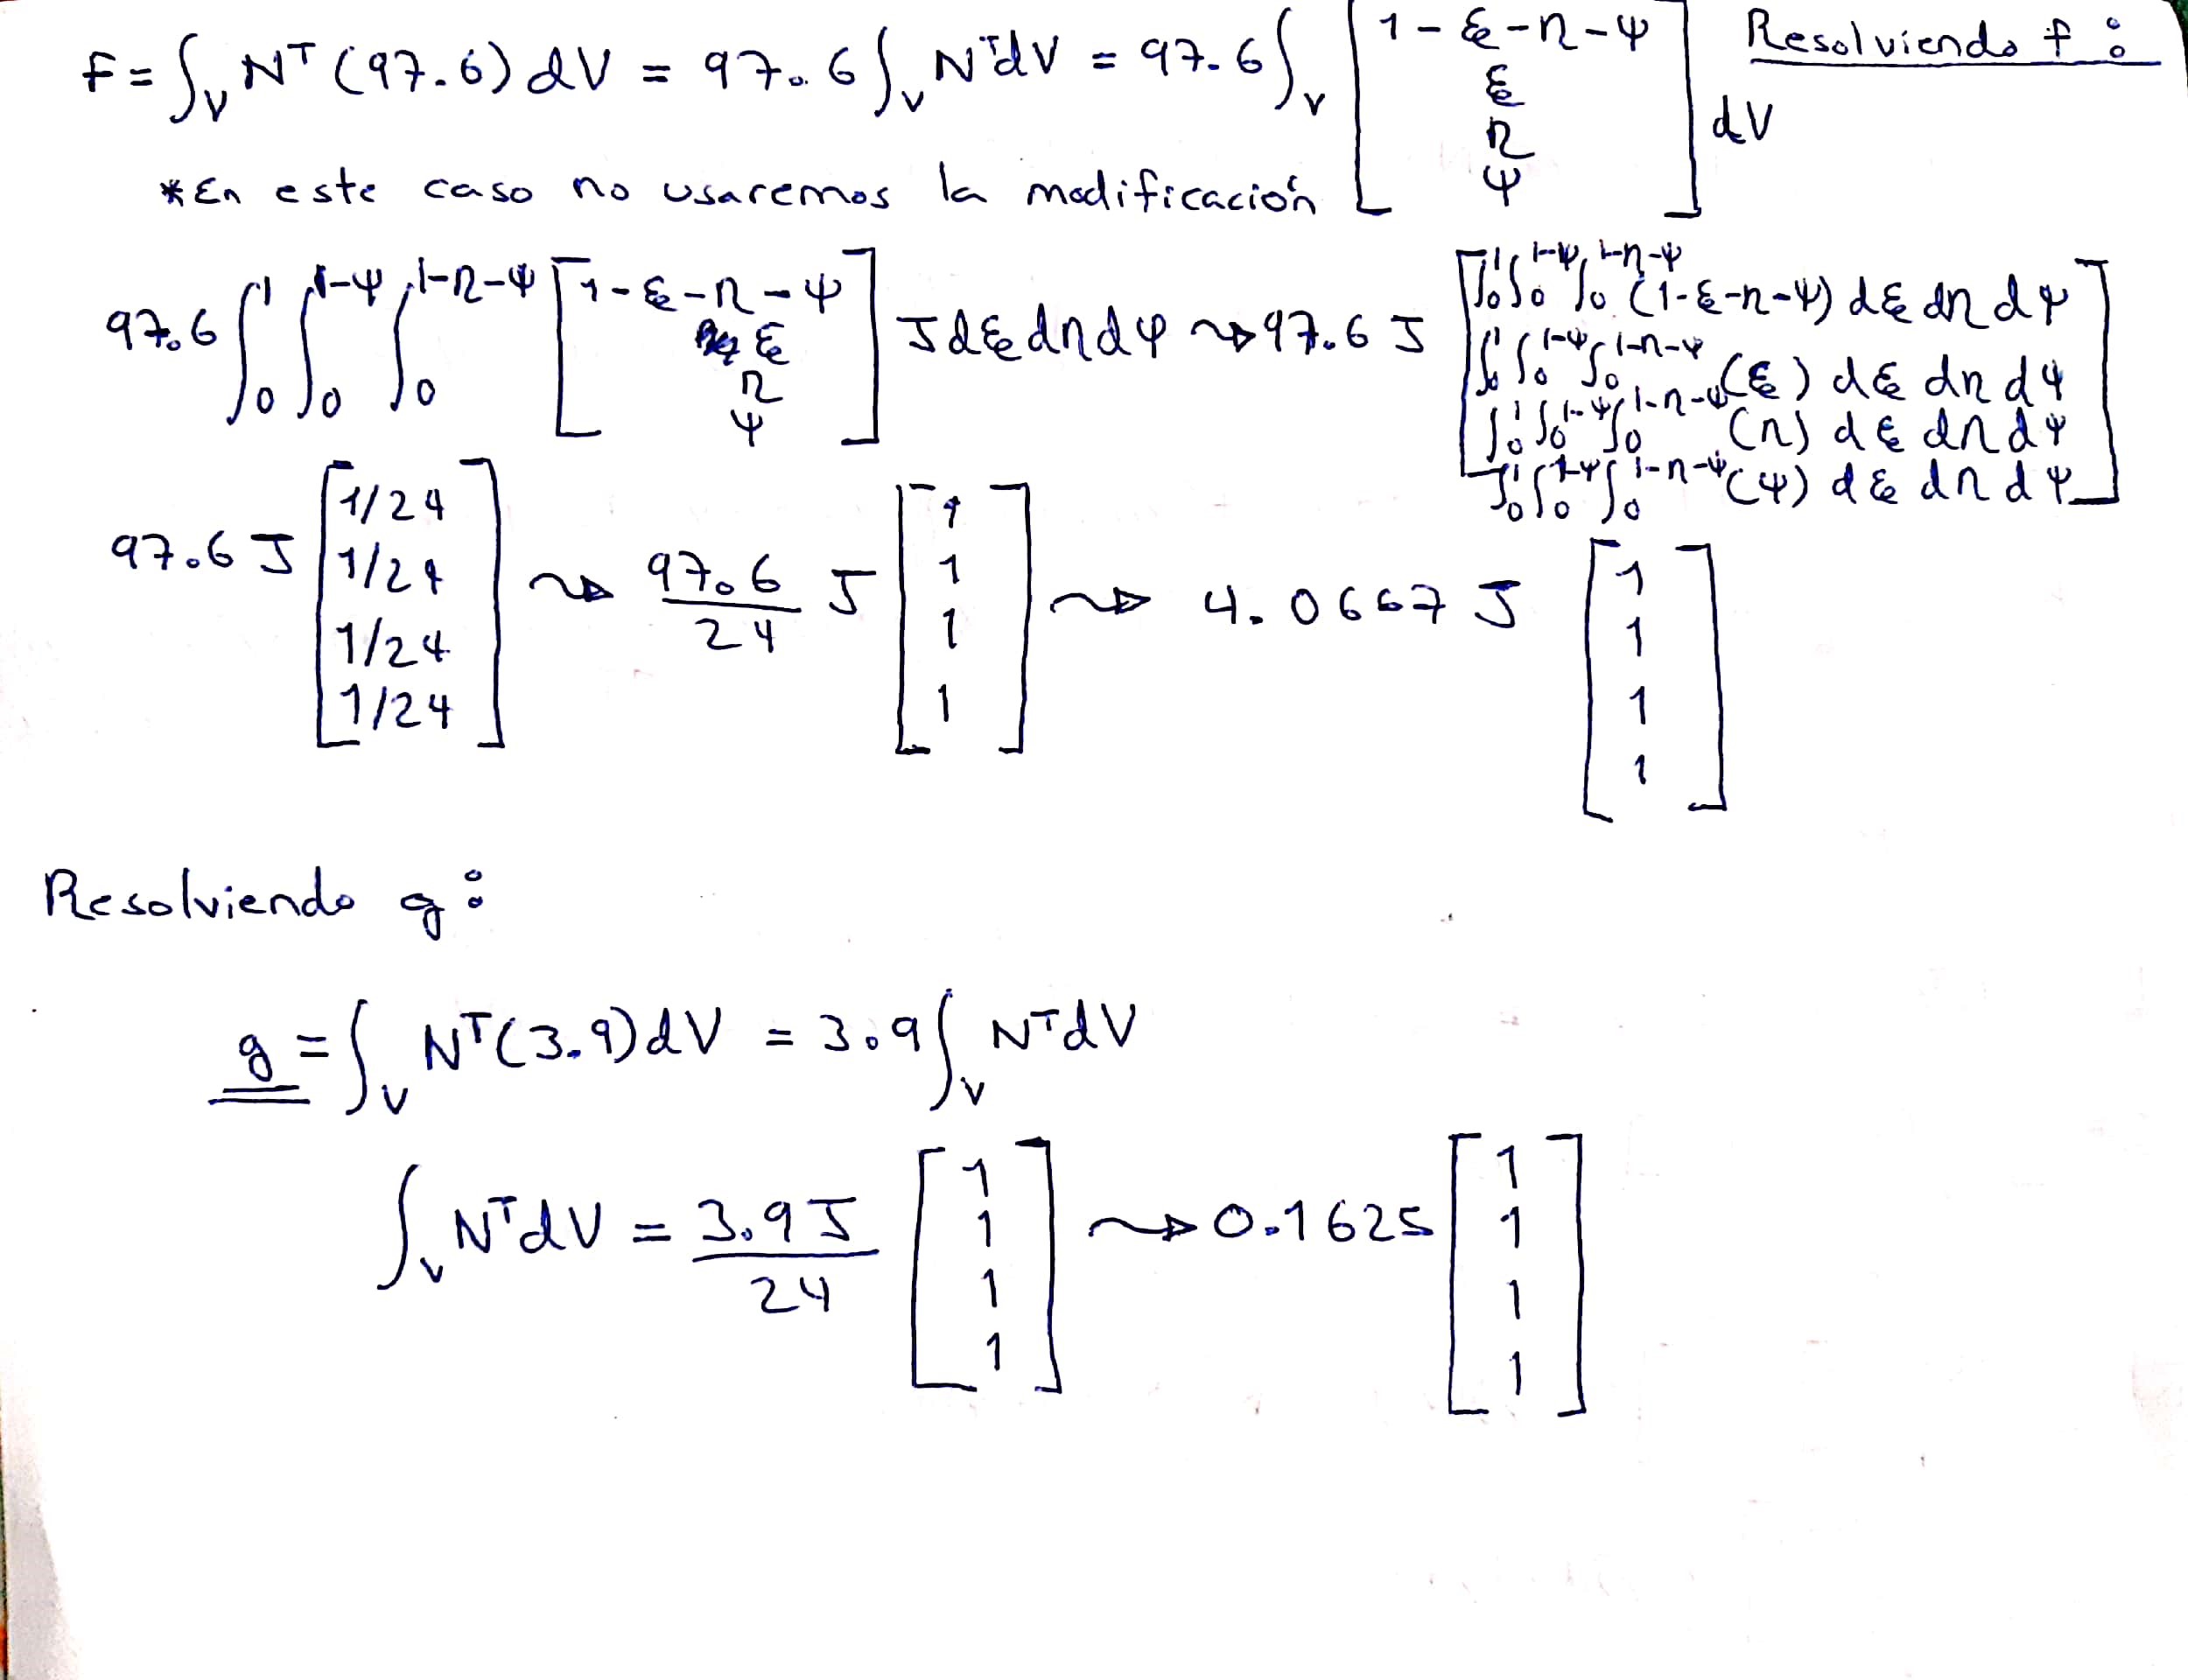 Resolviendo f:
F = ∫_V N^T (97.6) dV = 97.6 ∫_V N^T dV = 97.6 ∫_V [1-ξ-η-ψ; ξ; η; ψ] dV
*En este caso no usaremos la modificación
97.6 ∫_0^1 ∫_0^{1-ψ} ∫_0^{1-η-ψ} [1-ξ-η-ψ; ξ; η; ψ] J dξ dη dψ ⇝ 97.6 J [∫_0^1 ∫_0^{1-ψ} ∫_0^{1-η-ψ} (1-ξ-η-ψ) dξ dη dψ; ∫_0^1 ∫_0^{1-ψ} ∫_0^{1-η-ψ} (ξ) dξ dη dψ; ∫_0^1 ∫_0^{1-ψ} ∫_0^{1-η-ψ} (η) dξ dη dψ; ∫_0^1 ∫_0^{1-ψ} ∫_0^{1-η-ψ} (ψ) dξ dη dψ]
97.6 J [1/24; 1/24; 1/24; 1/24] ⇝ 97.6/24 J [1; 1; 1; 1] ⇝ 4.0667 J [1; 1; 1; 1]
Resolviendo g:
g = ∫_V N^T (3.9) dV = 3.9 ∫_V N^T dV
∫_V N^T dV = 3.9 J/24 [1; 1; 1; 1] ⇝ 0.1625 [1; 1; 1; 1]